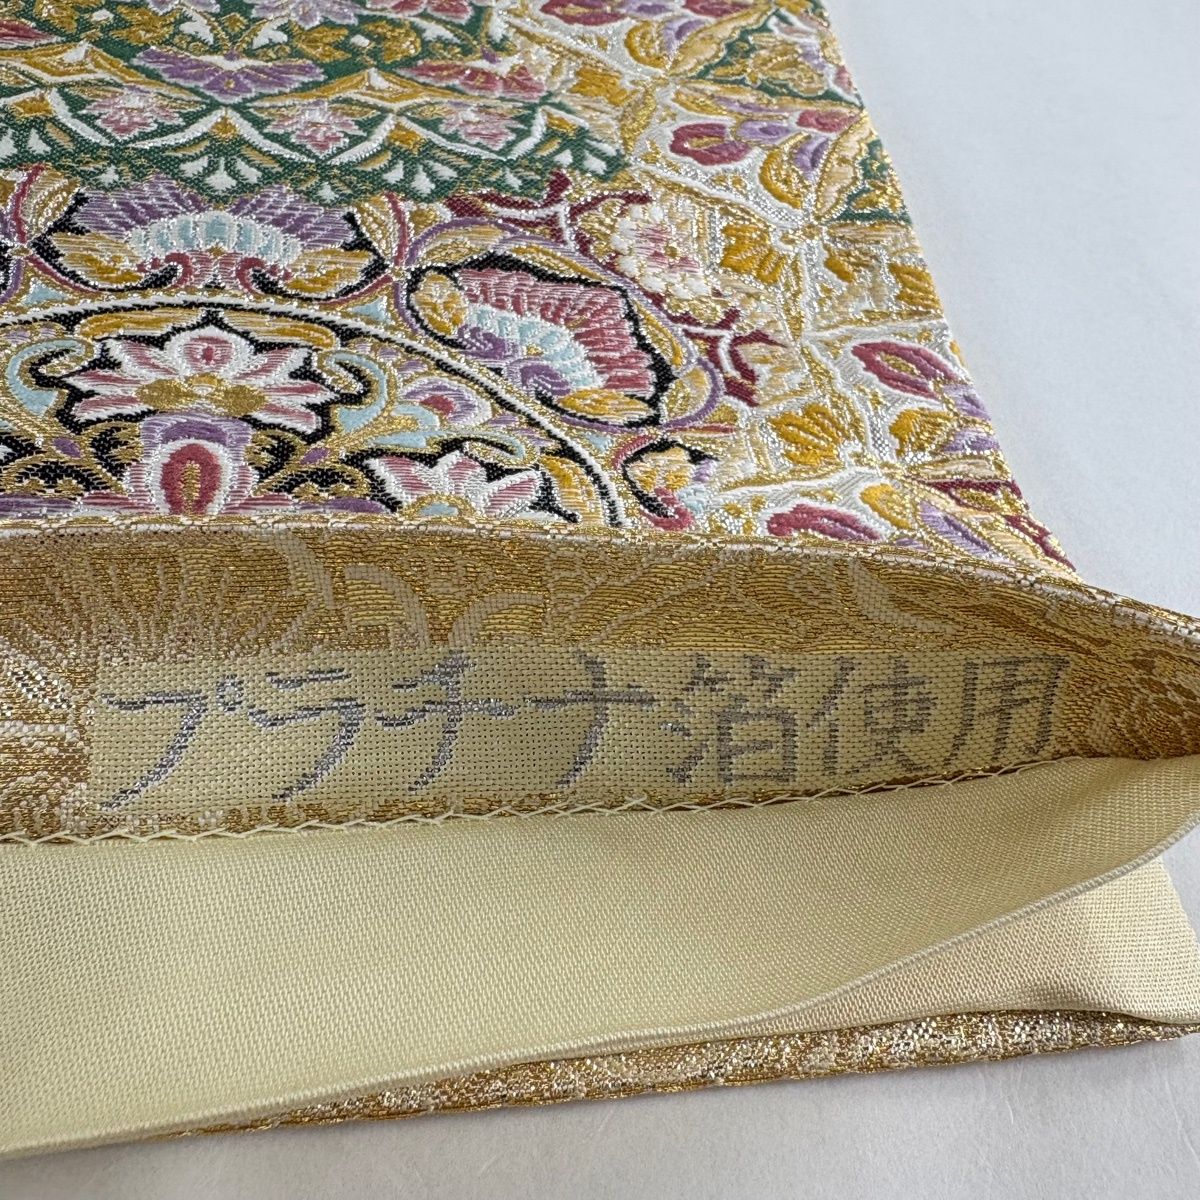 プラチナ箔使用